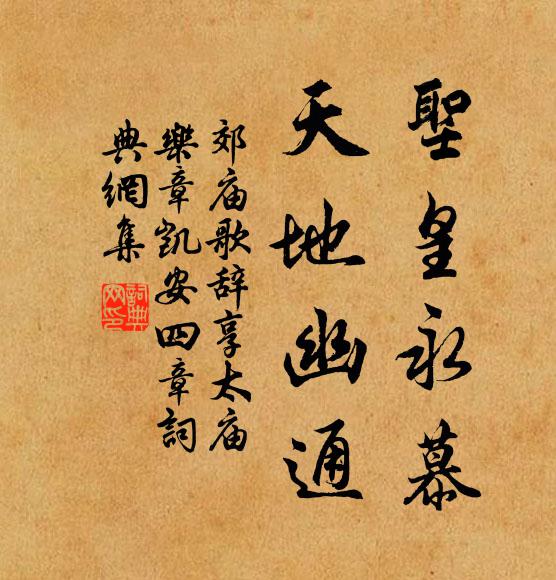 聖皇永慕
天地幽通
郊庙歌辞享太庙
樂章凱安四章詞
典網集
詞典
网印